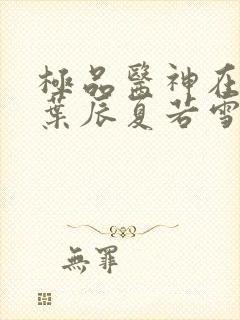 極品醫神在
葉辰夏若雪
無罪